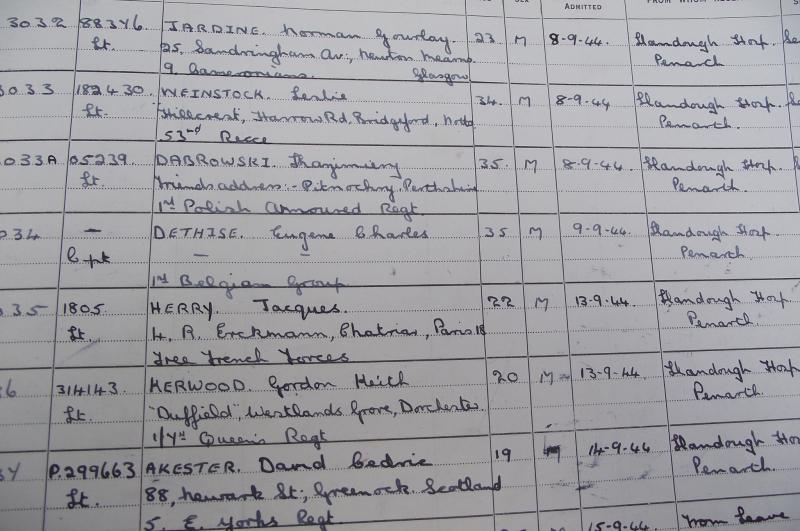 ADMITTED
3032 88346 JARDINE. Norman Gourlay. 23 M 8-9-44. Llandough Hosp.
Lt. 25, Sandringham Av., Newton Mearns. Penarth
9. Cameronians. Glasgow
3033 182430. WEINSTOCK. Leslie 34. M 8-9-44 Llandough Hosp.
Lt. Hillcrest, Harrow Rd, Bridgford, Notts. Penarth.
53rd Recce
033A 05239. DABROWSKI. 35. M 8-9-44. Llandough Hosp.
Lt. Friends address:- Pitnochry. Perthshire Penarth.
1st Polish Armoured Regt.
034 — DETHISE. Eugene Charles 35 M 9-9-44. Llandough Hosp.
Cpt — — Penarth
1st Belgian Group
035 1805. HERRY. Jacques. 22 M 13-9-44. Llandough Hosp
Lt. 4. R. Erckmann, Chatrian, Paris 18 Penarth.
Free French Forces
6 314143. KERWOOD. Gordon Keith 20 M 13-9-44. Llandough Hosp
Lt. "Duffield", Westlands Grove, Dorchester. Penarth.
1/7th Queen's Regt
P.299663 AKESTER. David Cedric 19 M 14-9-44 Llandough Hosp
Lt. 88, Newark St., Greenock. Scotland Penarth.
5. E. Yorks Regt. 15-9-44. From Leave